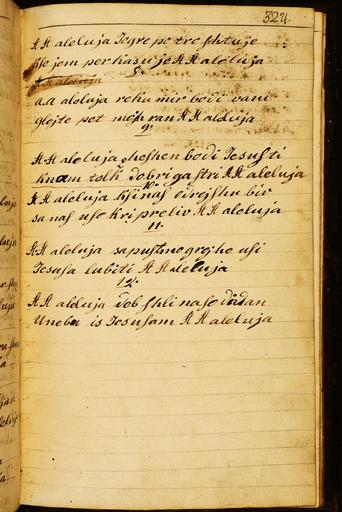 324.
A A aleluja Jogre po tro shtuje
use jem per kasuje A A aleluja
8.
A A aleluja
a.a aleluja rehu mir bodi vani
glejte pet mojh ran A A aleluja
9.
A A aleluja zheshen bodi Jesus ti
knam tolk dobri gastri A A aleluja
10.
A A aleluja ksi nas odrejshu biv
sa nas uso kri preliv A A aleluja
11.
A A aleluja sapustmo grezhe usi
Jesusa lubiti A A aleluja
12.
A A aleluja dob shli nase dadan
Uneba is Jesusam A A aleluja